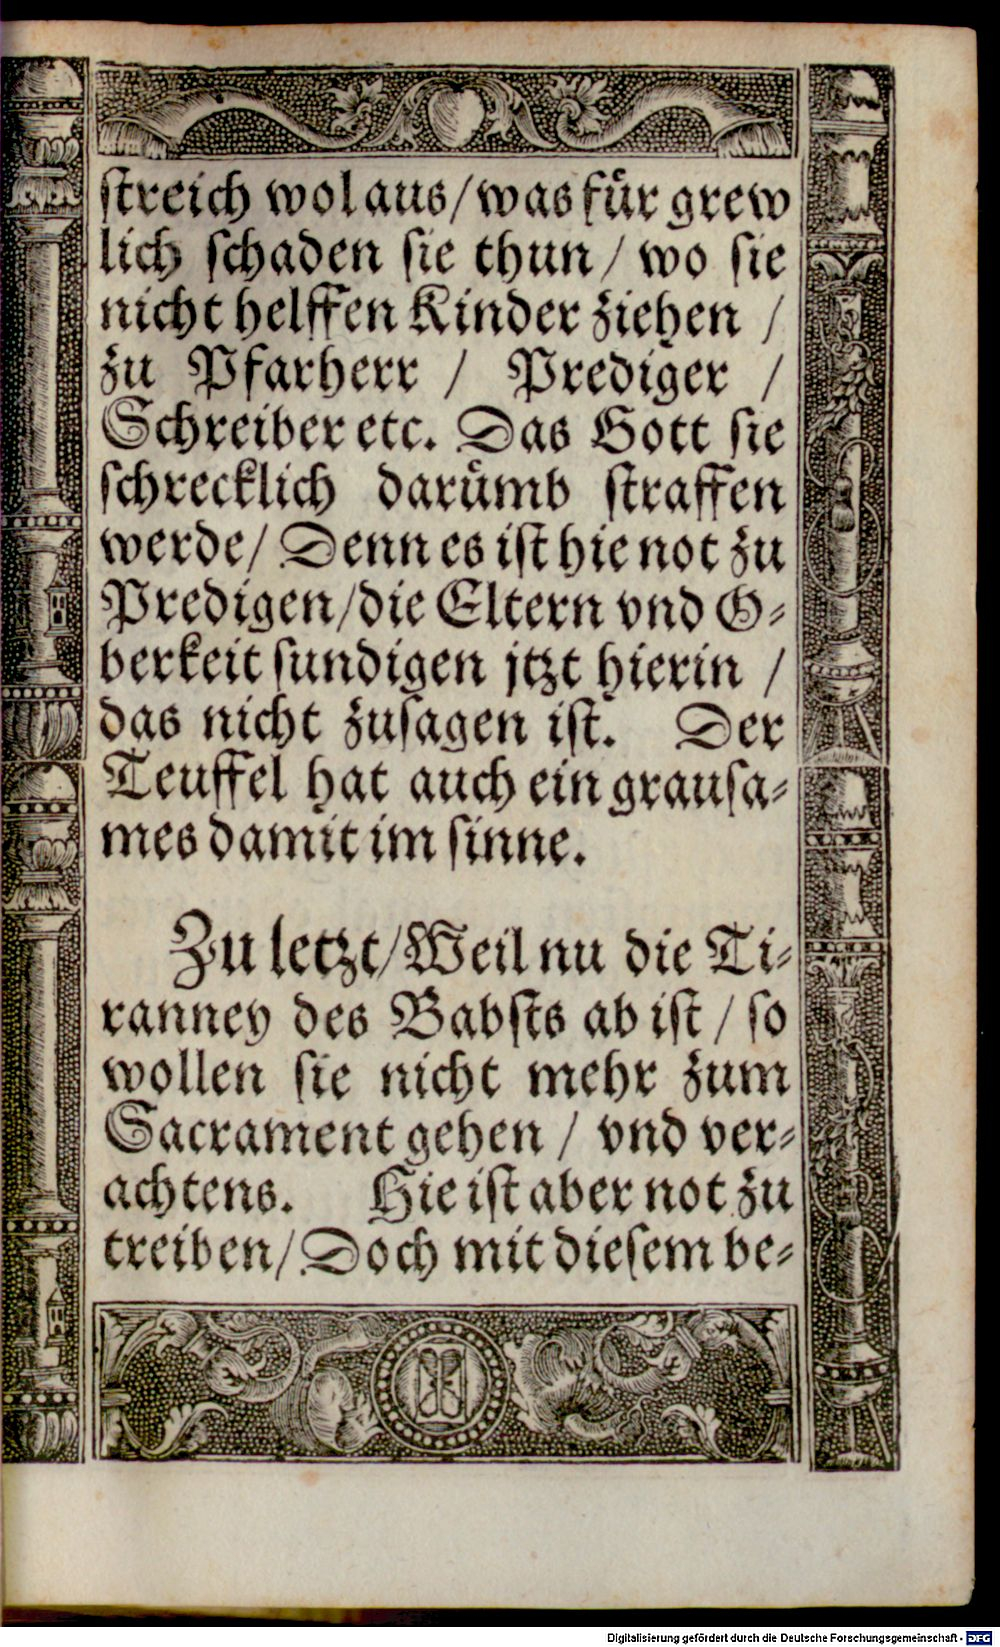 streich wol aus/was für grew
lich schaden sie thun/ wo sie
nicht helffen Kinder ziehen /
zu Pfarherr / Prediger /
Schreiber etc. Das Gott sie
schrecklich darümb straffen
werde/ Denn es ist hie not zu
Predigen/die Eltern vnd O-
berkeit sundigen jtzt hierin /
das nicht zusagen ist. Der
Teuffel hat auch ein grausa-
mes damit im sinne.
Zu letzt/Weil nu die Ti-
ranney des Babsts ab ist/ so
wollen sie nicht mehr zum
Sacrament gehen / vnd ver-
achtens. Hie ist aber not zu
treiben/Doch mit diesem be-
Digitalisierung gefördert durch die Deutsche Forschungsgemeinschaft - DFG